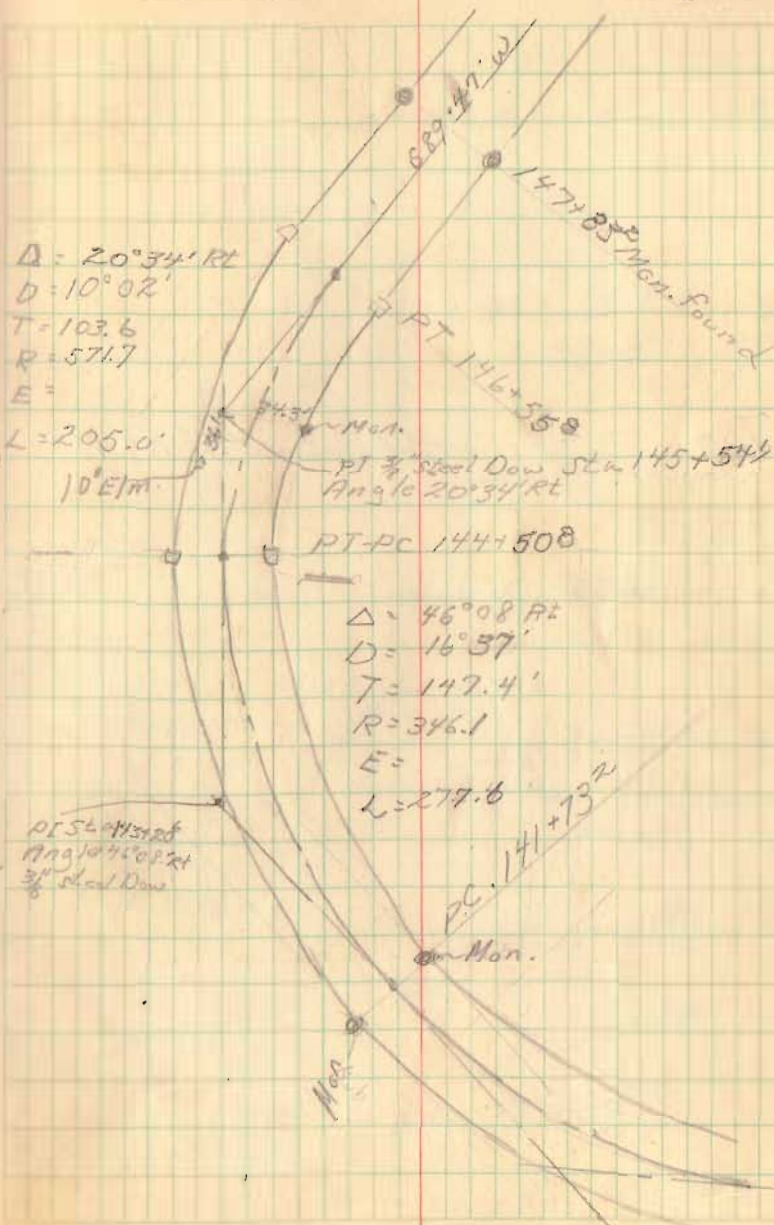 689.47' W
147+83² Mon. found
Δ = 20°34' Rt
D = 10°02'
T = 103.6
R = 571.7
E =
L = 205.0'
PT 146+55⁸
34.3
36.1
Mon.
PI ¾" Steel Dow Sta 145+54⁴
Angle 20°34' Rt
10" Elm.
PT-PC 144+50⁸
Δ = 46°08 Rt
D = 16°37'
T = 147.4'
R = 346.1
E =
L = 277.6
PI Sta 143+20⁶
Angle 46°08' Rt
¾" Steel Dow
P.C. 141+73²
Mon.
Mon.